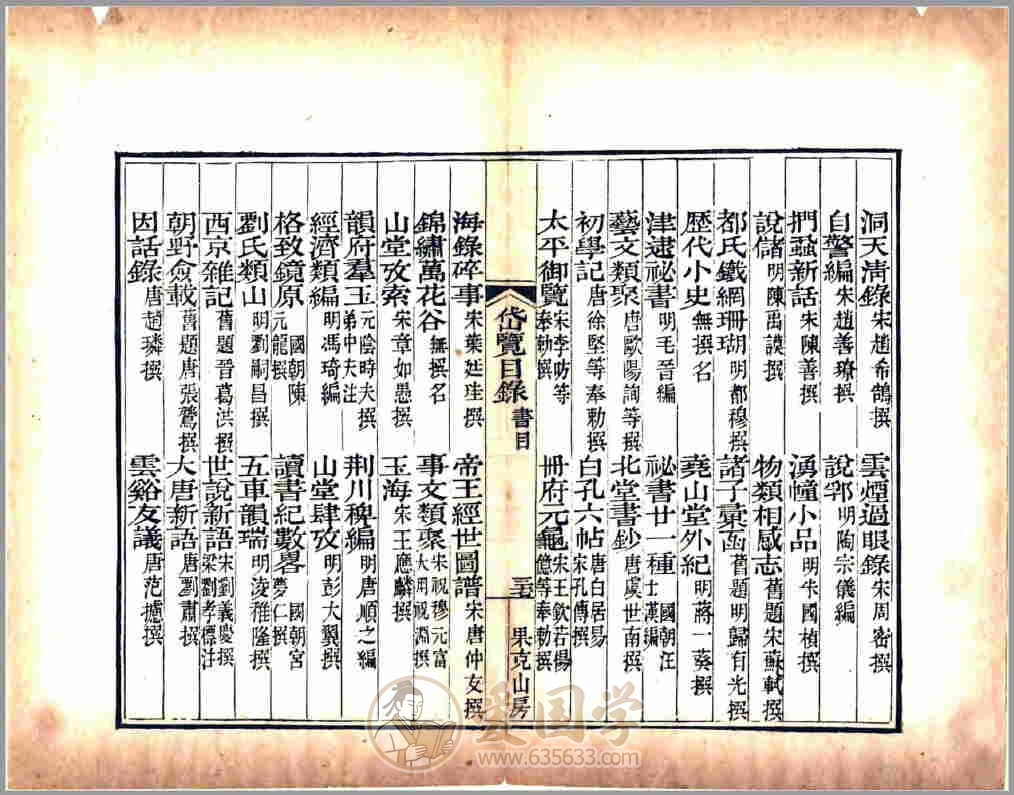 洞天淸錄宋趙希鵠撰　雲煙過眼錄宋周密撰
自警編宋趙善璙撰　說郛明陶宗儀編
捫蝨新話宋陳善撰　湧幢小品明朱國楨撰
說儲明陳禹謨撰　物類相感志舊題宋蘇軾撰
都氏鐵網珊瑚明都穆撰　諸子彙函舊題明歸有光撰
歷代小史無撰名　堯山堂外紀明蔣一葵撰
津逮祕書明毛晉編　祕書廿一種國朝汪士漢編
藝文類聚唐歐陽詢等撰　北堂書鈔唐虞世南撰
初學記唐徐堅等奉勅撰　白孔六帖唐白居易宋孔傳撰
太平御覽宋李昉等奉勅撰　冊府元龜宋王欽若楊億等奉勅撰
岱覽目錄　書目　三十五　果克山房
海錄碎事宋葉廷珪撰　帝王經世圖譜宋唐仲友撰
錦繡萬花谷無撰名　事文類聚宋祝穆元富大用祝淵撰
山堂攷索宋章如愚撰　玉海宋王應麟撰
韻府羣玉元陰時夫撰弟中夫注　荆川稗編明唐順之編
經濟類編明馮琦編　山堂肆攷明彭大翼撰
格致鏡原國朝陳元龍撰　讀書紀數畧國朝宮夢仁撰
劉氏類山明劉嗣昌撰　五車韻瑞明淩稚隆撰
西京雜記舊題晉葛洪撰　世說新語宋劉義慶撰梁劉孝標注
朝野僉載舊題唐張鷟撰　大唐新語唐劉肅撰
因話錄唐趙璘撰　雲谿友議唐范攄撰
爱国学
www.635633.com